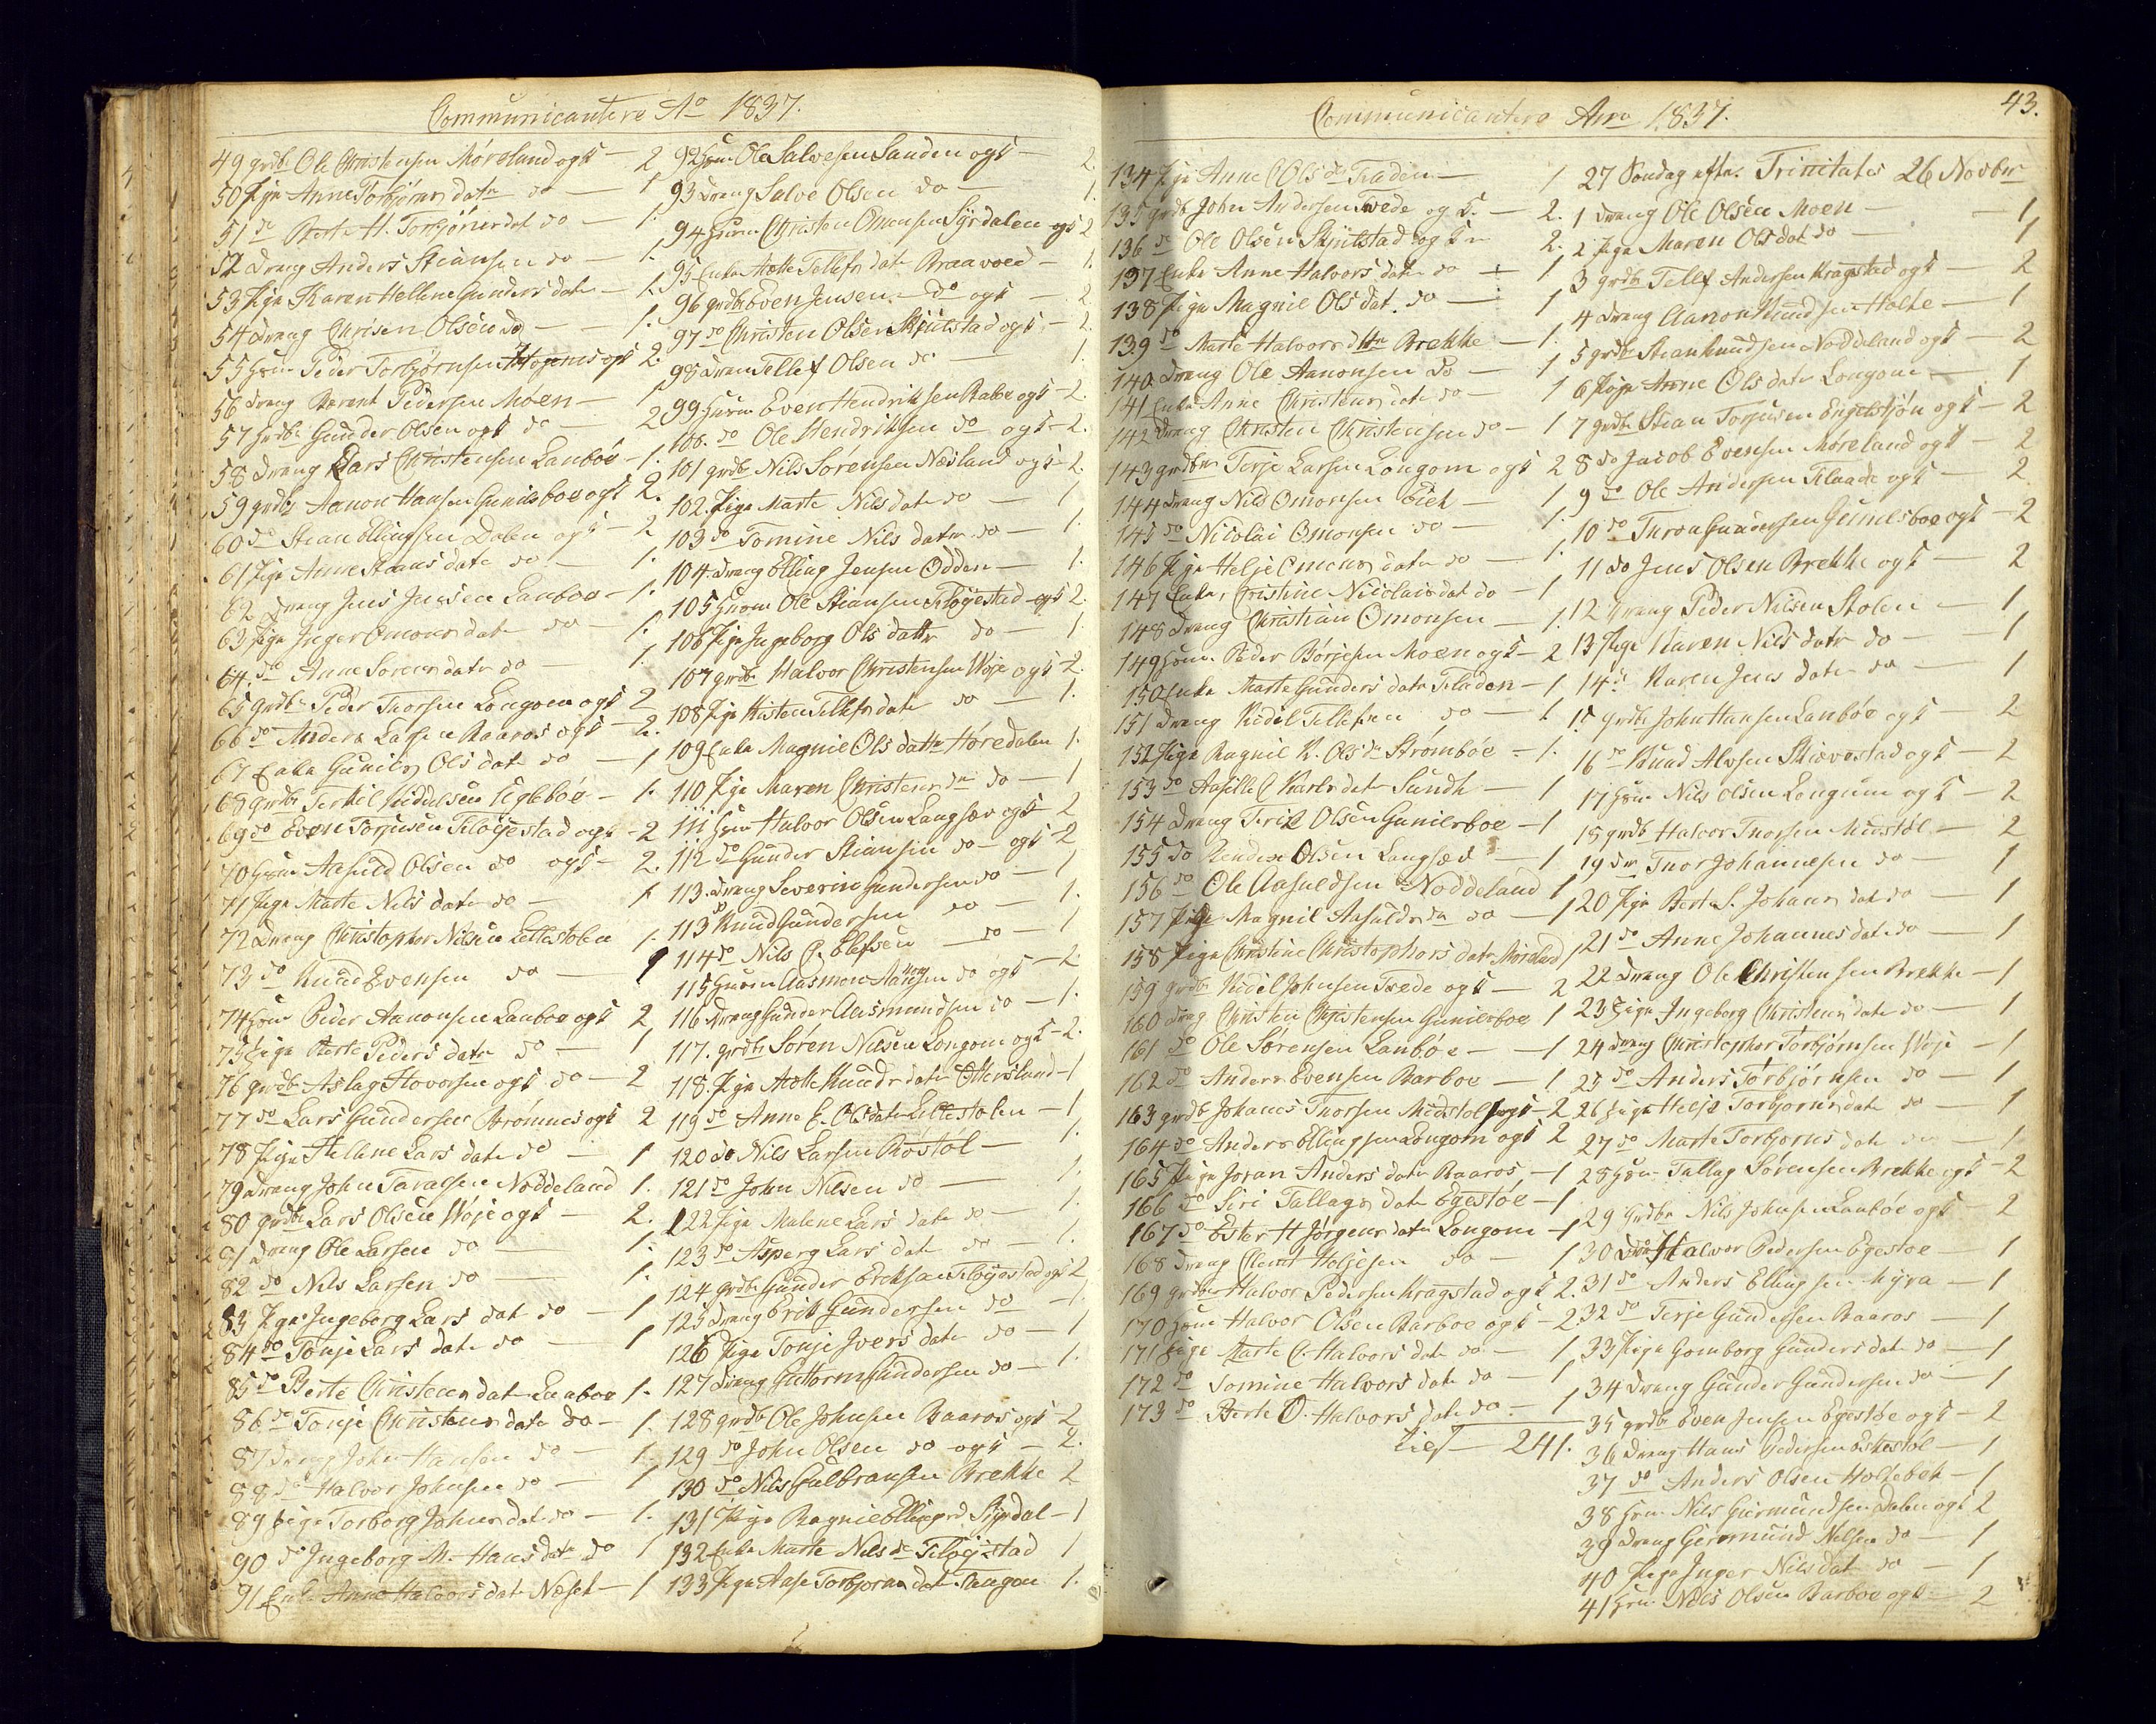 Communicantere Ao 1837.
49 grdbr Ole Christensen Møreland og K - 2
50 Pige Anne Torbjørns datr do - 1
51 do Berte H. Torbjørnsdat do - 1.
52 Dreng Anders Stiansen do - 1.
53 Pige Karen Hellene Gunders datr - 1.
54 Dreng Chrisen Olsen do - 1.
55 Huusm Peder Torbjørnsen og K 2.
56 Dreng Berent Pedersen Moen - 1
57 grdbr Gunder Olsen og K do - 2
58 Dreng Lars Christensen Lanboe - 1.
59 grdbr Aanon Hansen Gunilsboe og K 2.
60 do Stian Ellingsen Dalen og K - 2
61 Pige Anne Stians datr do - 1.
62 Dreng Jens Jensen Lanboe - 1.
63 Pige Inger Omons datr do - 1.
64 do Anne Sørens datr do - 1.
65 grdbr Peder Thorsen Longom og K 2
66 do Anders Larsen Baaros og K - 2.
67 Enke Gunild Ols datr do - 1
68 grdbr Terkil Kiddelsen Ugleboe - 1.
69 do Even Torjusen Fløyestad og K - 2
70 Huusm Aasuld Olsen do og K - 2.
71 Pige Marte Nils datr do - 1
72 Dreng Christopher Nilsen Lillestolen 1.
73 do Knud Evensen do - 1
74 Huusm Peder Aanonsen Lanboe og K 2
75 Pige Berte Peders datr do - 1
76 grdbr Aslag Hovorsen og K do - 2
77 do Lars Gundersen Strømnes og K 2
78 Pige Hellene Lars datr do - 1
79 Dreng John Taraldsen Noddeland 1.
80 grdbr Lars Olsen Woje og K - 2.
81 Dreng Ole Larsen do - 1.
82 do Nils Larsen do - 1.
83 Pige Ingeborg Lars dat do - 1
84 do Tonje Lars datr do - 1
85 do Berte Christens dat Lanboe 1.
86 do Tonje Christens datr do - 1.
87 Dreng John Hansen do - 1.
88 do Halvor Johnsen do - 1
89 Pige Torborg Johns dat do - 1.
90 do Ingeborg M. Hans datr do 1
91 Enke Anne Halvors dat Neset - 1
92 Huusm Ole Salvesen Sanden og K - 2.
93 Dreng Salve Olsen do - 1.
94 Huusm Christen Omonsen Syrdalen og K 2
95 Enke Aette Tellefs dat Braavoed - 1.
96 grdbr Even Jensen do og K - 2.
97 do Christen Olsen Skiulstad og K - 2.
98 Dreng Tellef Olsen do - 1.
99 Huusm Even Hendriksen Rabbe og K - 2.
100. do Ole Hendriksen do og K - 2.
101 grdbr Nils Sørensen Nesland og K - 2.
102. Pige Marte Nils dat do - 1
103 do Tomine Nils datr do - 1.
104. Dreng Elling Jensen Odden - 1.
105 Huusm Ole Stiansen Fløyestad og K 2.
106 Pige Ingeborg Ols dattr do - 1.
107 grdbr Halvor Christensen Woje og K - 2.
108 Pige Kisten Tellefs datr do - 1.
109 Enke Magnil Ols dattr Høredalen 1.
110 Pige Maren Christens dr do - 1
111 Huusm Halvor Olsen Langsæv og K 2
112 do Gunder Stiansen do - og K - 2
113. Dreng Severin Gundersen do - 1
113 do Knud Gundersen do - 1.
114 do Nils G. Elefsen do - 1
115 Huusm Aasmon Aanonsen do og K - 2
116 Dreng Gunder Aasmundsen do - 1.
117. grdbr Søren Nilsen Longom og K - 2.
118. Pige Aette Knuds datr Ottersland - 1
119 do Anne E. Ols datr Lillestolen - 1
120 do Nils Larsen Rostøl - 1.
121 do John Nilsen do - 1.
122 Pige Malene Lars datr do - 1.
123 do Asperg Lars dat do - 1.
124 grdbr Gunder Ericksen Fløyestad og K 2
125 Dreng Erik Gundersen do - 1.
126 Pige Tonje Ivers datr do - 1
127 Dreng Guttorm Gundersen do - 1.
128 grdbr Ole Johnsen Baaros og K - 2
129 do John Olsen do og K - 2.
130 do Nils Gulbransen Brekke 2
131 Pige Ragnil Ellings d Syrdal - 1
132 Enke Marte Nils dr Fløyestad 1
133 Pige Aase Torbjorns dat Tangen 1.
Communicantere Anno 1837.
43.
134 Pige Anne C Ols dr Fladen - 1
135 grdbr John Andersen Twede og K. - 2.
136 do Ole Olsen Skiulstad og K - 2.
137 Enke Anne Halvors datr do - 1
138 Pige Magnil Ols dat. do - 1
139 do Marte Halvors dttr Brekke - 1.
140 Dreng Ole Aanonsen do - 1
141 Enke Anne Christens datr do - 1
142 Dreng Christen Christensen do - 1
143 grdbr Terje Larsen Longom og K 2
144 Dreng Nils Omonsen Eieh - 1
145 do Nicolai Omonsen do - 1.
146 Pige Helje Omons datr do - 1.
147 Enke Cristine Nicolais dat do - 1
148 Dreng Christian Omonsen - 1.
149 Huusm Peder Børjesen Moen og K - 2
150 Enke Marte Gunders datr Fladen - 1
151 Dreng Kidel Tellefsen do - 1.
152 Pige Ragnil K. Ols dr Strømboe - 1.
153 do Aasille C Karls dat Sundk - 1
154 Dreng Terik Olsen Gunilsboe - 1
155 do Olsen Langsæd - 1
156 do Ole Aasuldsen Noddeland 1
157 Pige Magnil Aasulds dr do - 1
158 Pige Christine Christophers datr Møreland 1
159 grdbr Kidel Johnsen Twede og K - 2
160 Dreng Christen Christensen Gunilsboe 1
161 do Ole Sørensen Lanbøe - 1
162 do Anders Evensen Barboe - 1.
163 grdbr Johans Thorsen Midstøl og K - 2
164 do Anders Ellingsen Longom og K 2
165 Pige Joran Anders datr Baaros - 1
166 do Siri Tallags datr Egestøe - 1
167 do Ester H Jørgens datr Longom - 1
168 Dreng Clemet Holjesen do - 1
169 grdbr Halvor Pedersen Kragstad og K 2.
170 Huusm Halvor Olsen Barboe og K - 2
171 Pige Marte C. Halvors datr do - 1.
172 do Tomine Halvors datr do - 1
173 do Berte O. Halvors datr do - 1
241.
27 Søndag efter Trinitates 26 Novbr
1 Dreng Ole Olsen Moen - 1
2 Pige Maren Ols dat do - 1
3 grdbr Tellef Andersen Kragstad og K - 2
4 Dreng Aanon Knudsen Holte - 1
5 grdbr Stian Knudsen Noddeland og K - 2
6 Pige Anne Ols datr Longom - 1
7 grdbr Stian Torjusen Engelstjøn og K - 2
8 do Jacob Evensen Møreland og K - 2
9 do Ole Andersen Flaade og K - 2.
10 do Thron Gundersen Gunilsboe og K - 2
11 do Jens Olsen Brekke og K - 2
12 Dreng Peder Nilsen Stolen - 1
13 Pige Karen Nils datr do - 1
14 do Karen Jens datr do - 1
15 grdbr John Hansen Lanbøe og K - 2
16 do Knud Alvsen Skiævestad og K - 2
17 Huusm Nils Olsen Longum og K - 2
18 grdbr Halvor Thorsen Midstøl - 2
19 Dr Thor Johannesen do - 1
20 Pige Berte S. Johans dat do - 1
21 do Anne Johannes dat do - 1
22 Dreng Ole Christensen Brekke - 1
23 Pige Ingeborg Christens datr do - 1
24 Dreng Christopher Torbjørnsen Woje - 1
25 do Anders Torbjørnsen do - 1
26 Pige Helje Torbjorns datr do 1
27 do Marte Torbjorns datr do - 1
28 Huusm Tallag Sørensen Brekke og K - 2
29 grdbr Nils Johnsen Lanboe og K - 2
30 Dreng Halvor Pedersen Egestoe 1
31 do Anders Ellingsen Myra - 1
32 do Terje Gundersen Baaros - 1
33 Pige Gomborg Gunders datr do - 1
34 Dreng Gunder Gundersen do - 1
35 grdbr Even Jensen Egestøe og K - 2
36 Dreng Hans Pedersen Eskestøl - 1
37 do Anders Olsen Holtebek - 1
38 Huusm Nils Giermundsen Dalen og K 2
39 Dreng Giermund Nilsen do 1
40 Pige Inger Nils dat do - 1
41 Huusm Niels Olsen Barboe og K - 2